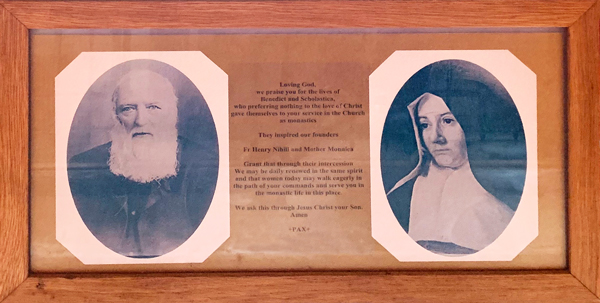 Loving God,
we praise you for the lives of
Benedict and Scholastica,
who preferring nothing to the love of Christ
gave themselves to your service in the Church
as monastics
They inspired our founders
Fr Henry Nihill and Mother Monnica
Grant that through their intercession
We may be daily renewed in the same spirit
and that women today may walk eagerly in
the path of your commands and serve you in
the monastic life in this place.
We ask this through Jesus Christ your Son.
Amen
+PAX+